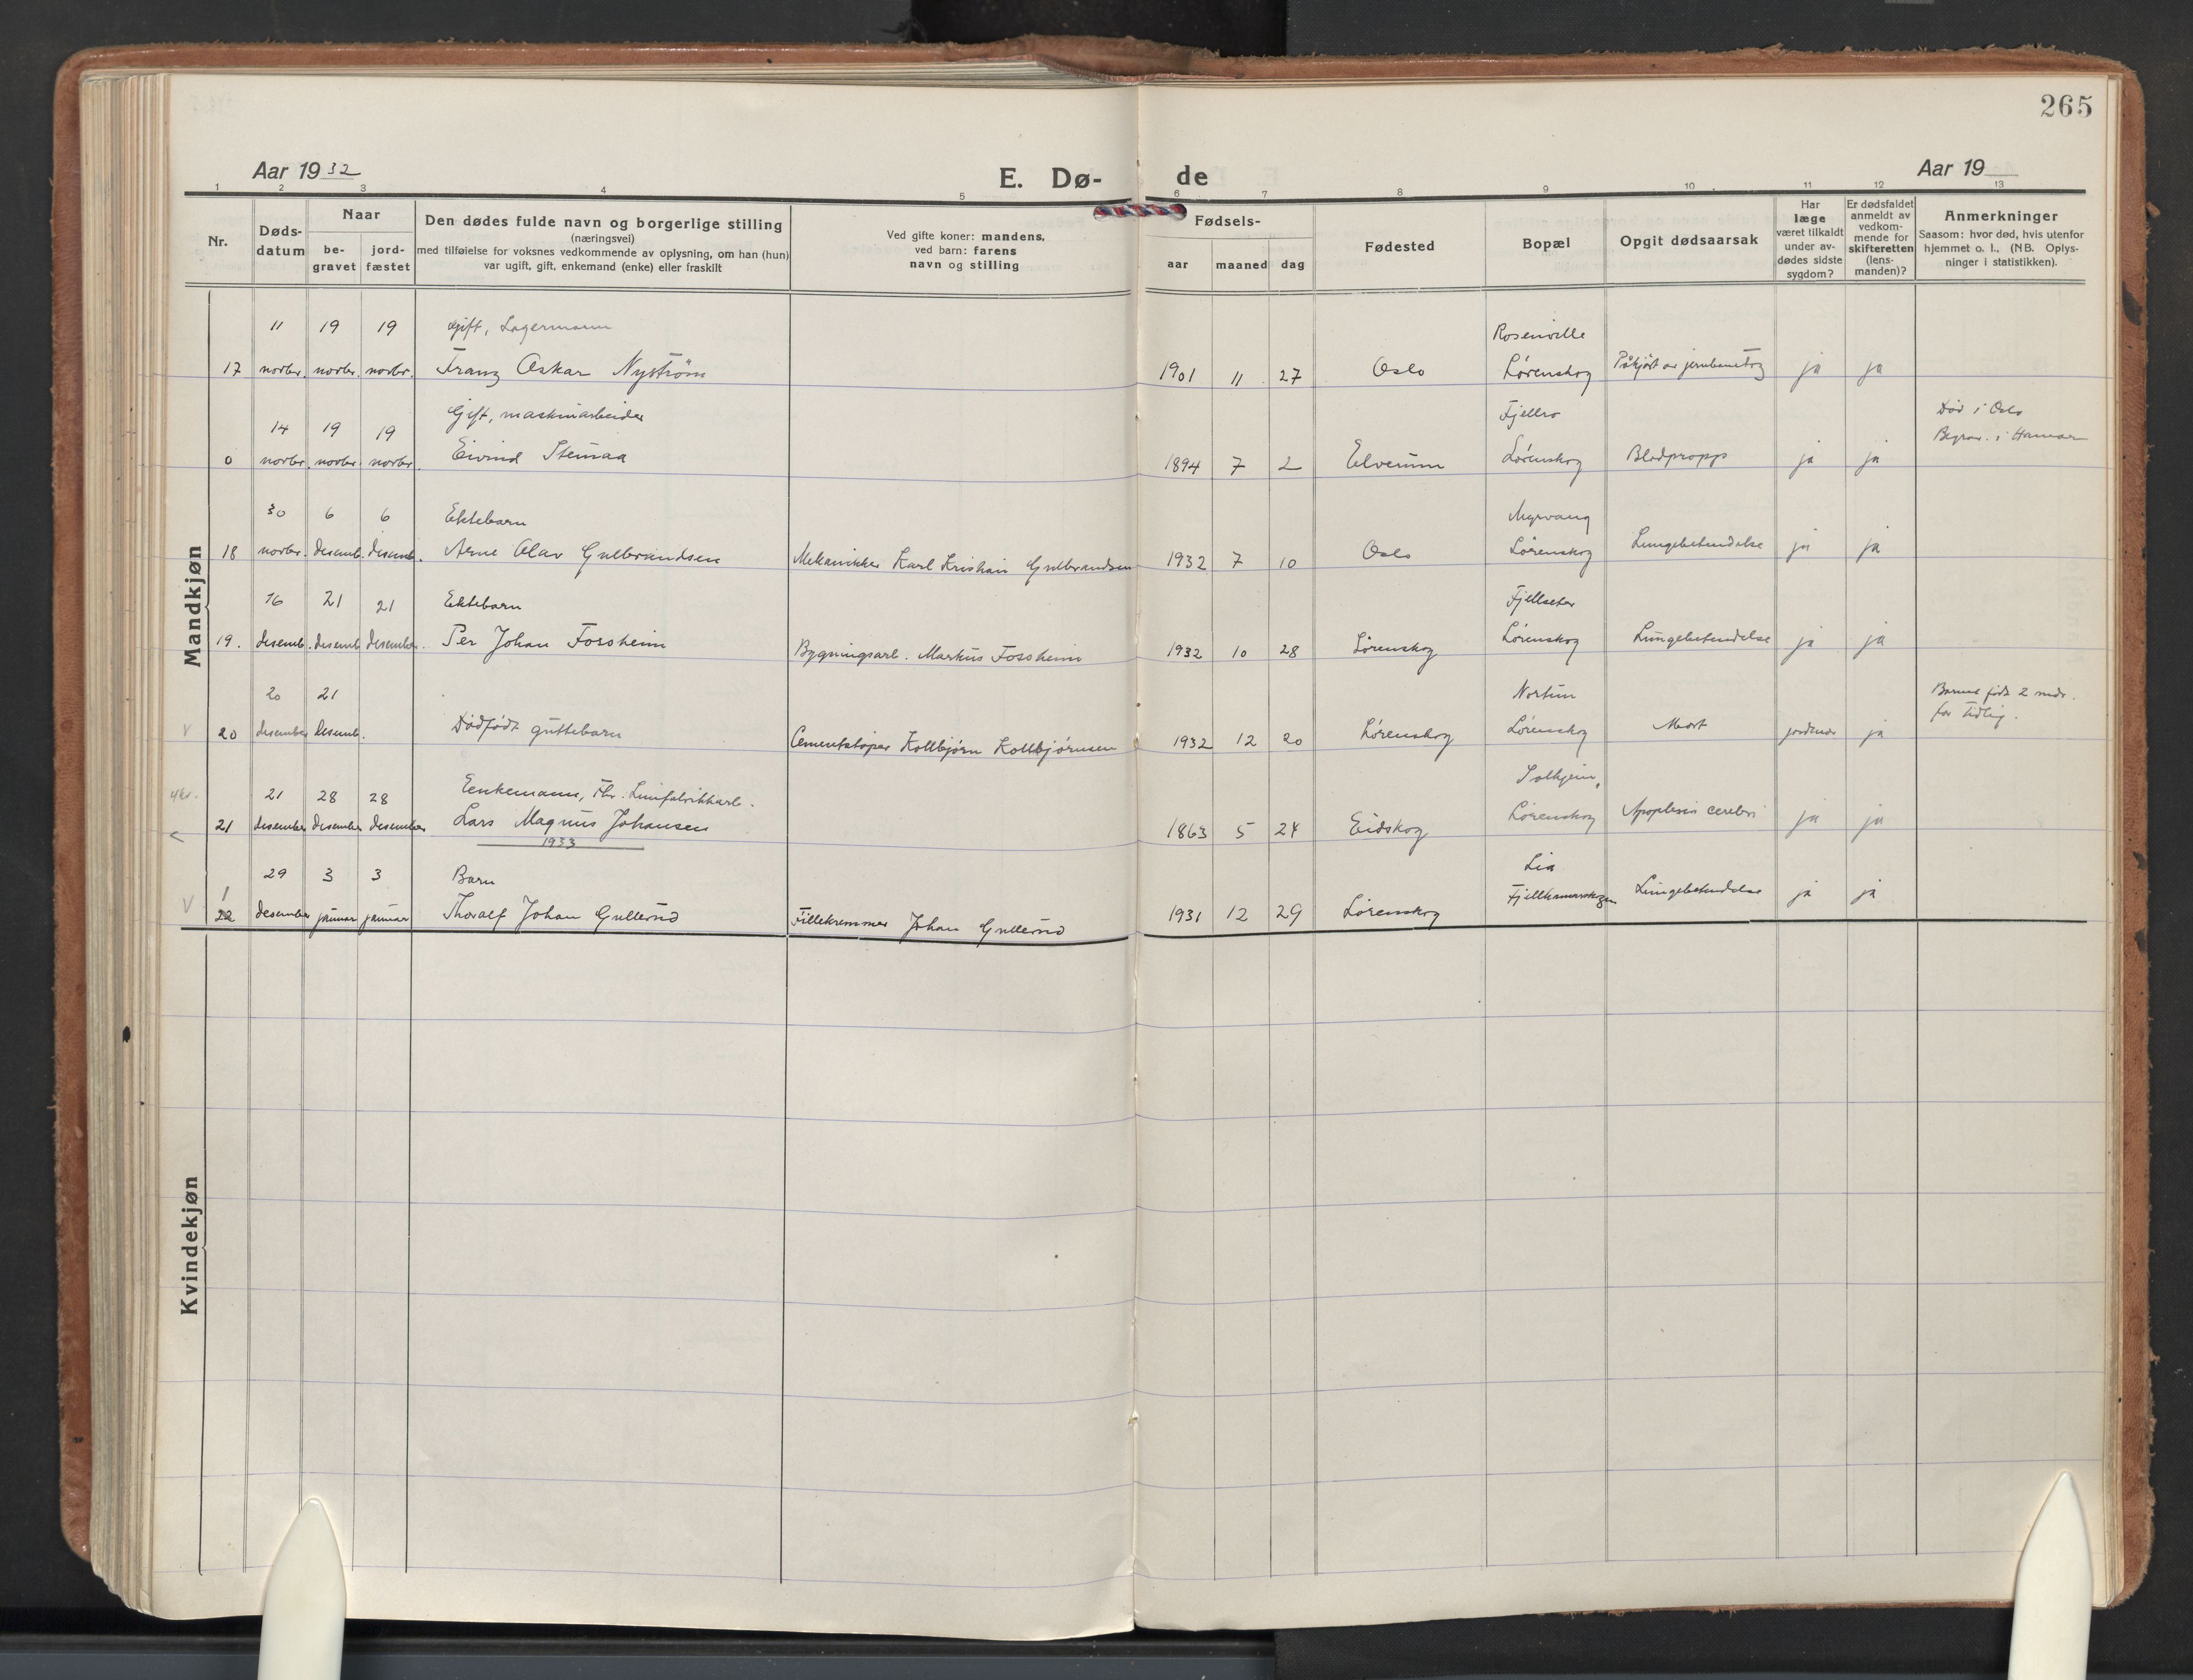 265
Aar 1932
E. Dø-
de
Aar 19
1 2 3 4 5 6 7 8 9 10 11 12 13
Nr.
Døds-
datum
Naar
be-
gravet
jord-
fæstet
Den dødes fulde navn og borgerlige stilling
(næringsvei)
med tilføielse for voksnes vedkommende av oplysning, om han (hun)
var ugift, gift, enkemand (enke) eller fraskilt
Ved gifte koner: mandens,
ved barn: farens
navn og stilling
Fødsels-
aar maaned dag
Fødested
Bopæl
Opgit dødsaarsak
Har
læge
været tilkaldt
under av-
dødes sidste
sygdom?
Er dødsfaldet
anmeldt av
vedkom-
mende for
skifteretten
(lens-
manden)?
Anmerkninger
Saasom: hvor død, hvis utenfor
hjemmet o. l., (NB. Oplys-
ninger i statistikken).
Mandkjøn
11 19 19 Gift, Lagermann Rosenville
17 novbr. novbr. novbr. Franz Oskar Nyström 1901 11 27 Oslo Lørenskog Påkjørt av jernbanetog ja ja
14 19 19 Gift, maskinarbeider Fjellro Død i Oslo
Begrav. i Hamar
0 novbr. novbr. novbr. Eivind Stenaa 1894 7 2 Elverum Lørenskog Blodpropp ja ja
30 6 6 Ektebarn Myrvang
18 novbr. desemb. desemb. Arne Olav Gulbrandsen Mekaniker Karl Kristian Gulbrandsen 1932 7 10 Oslo Lørenskog Lungebetendelse ja ja
16 21 21 Ektebarn Fjellseter
19. desemb. desemb. desember. Per Johan Fossheim Bygningsarb. Markus Fossheim 1932 10 28 Lørenskog Lørenskog Lungebetendelse ja ja
20 21 Nortun Barnet født 2 mdr.
for tidlig.
V 20 desember desemb. Dødfødt guttebarn Cementstøper Kolbjørn Kolbjørnsen 1932 12 20 Lørenskog Lørenskog Mort jordmor ja
4kr. 21 28 28 Enkemann, fhv. Limfabrikkarb. Solheim,
21 desember desember desember Lars Magnus Johansen 1863 5 24 Eidskog Lørenskog Apoplexia cerebri ja ja
1933
29 3 3 Barn Lia
V 1
22 desember januar januar Thoralf Johan Gullerud Fillekremmer Johan Gullerud 1931 12 29 Lørenskog Fjellhamarskogen Lungebetendelse ja ja
Kvindekjøn